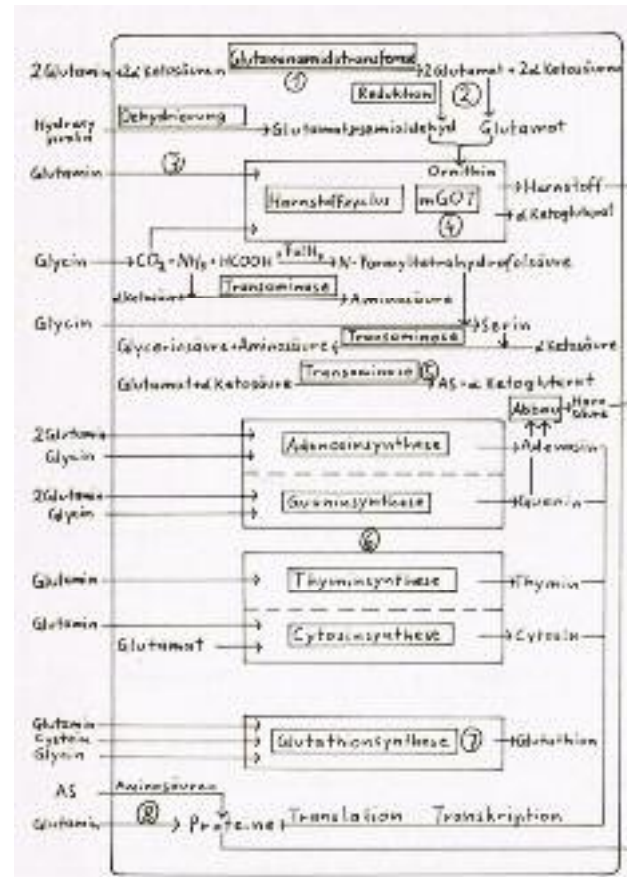 2 Glutamin + 2α Ketosäuren Glutaminamidotransferase 2 Glutamat + 2α Ketosäure
① Reduktion ②
Hydroxyprolin Dehydrierung Glutamatsemialdehyd Glutamat
Glutamin ③ Ornithin
Harnstoffzyklus mGOT Harnstoff
④ α Ketoglutarat
Glycin CO2 + NH3 + HCOOH N-Formyltetrahydrofolsäure
α Ketosäure Transaminase Aminosäure
Glycin Serin
Glycerinsäure + Aminosäure Transaminase α Ketosäure
Glutamat + α Ketosäure Transaminase ⑤ AS + α Ketoglutarat
Abbau Harnsäure
2 Glutamin
Glycin Adenosinsynthese Adenosin
2 Glutamin
Glycin Guaninsynthese Guanin
⑥
Glutamin Thyminsynthese Thymin
Glutamin Cytosinsynthese Cytosin
Glutamat
Glutamin
Cystein Glutathionsynthese ⑦ Glutathion
Glycin
AS Aminosäuren
Glutamin ⑧ Proteine Translation Transkription